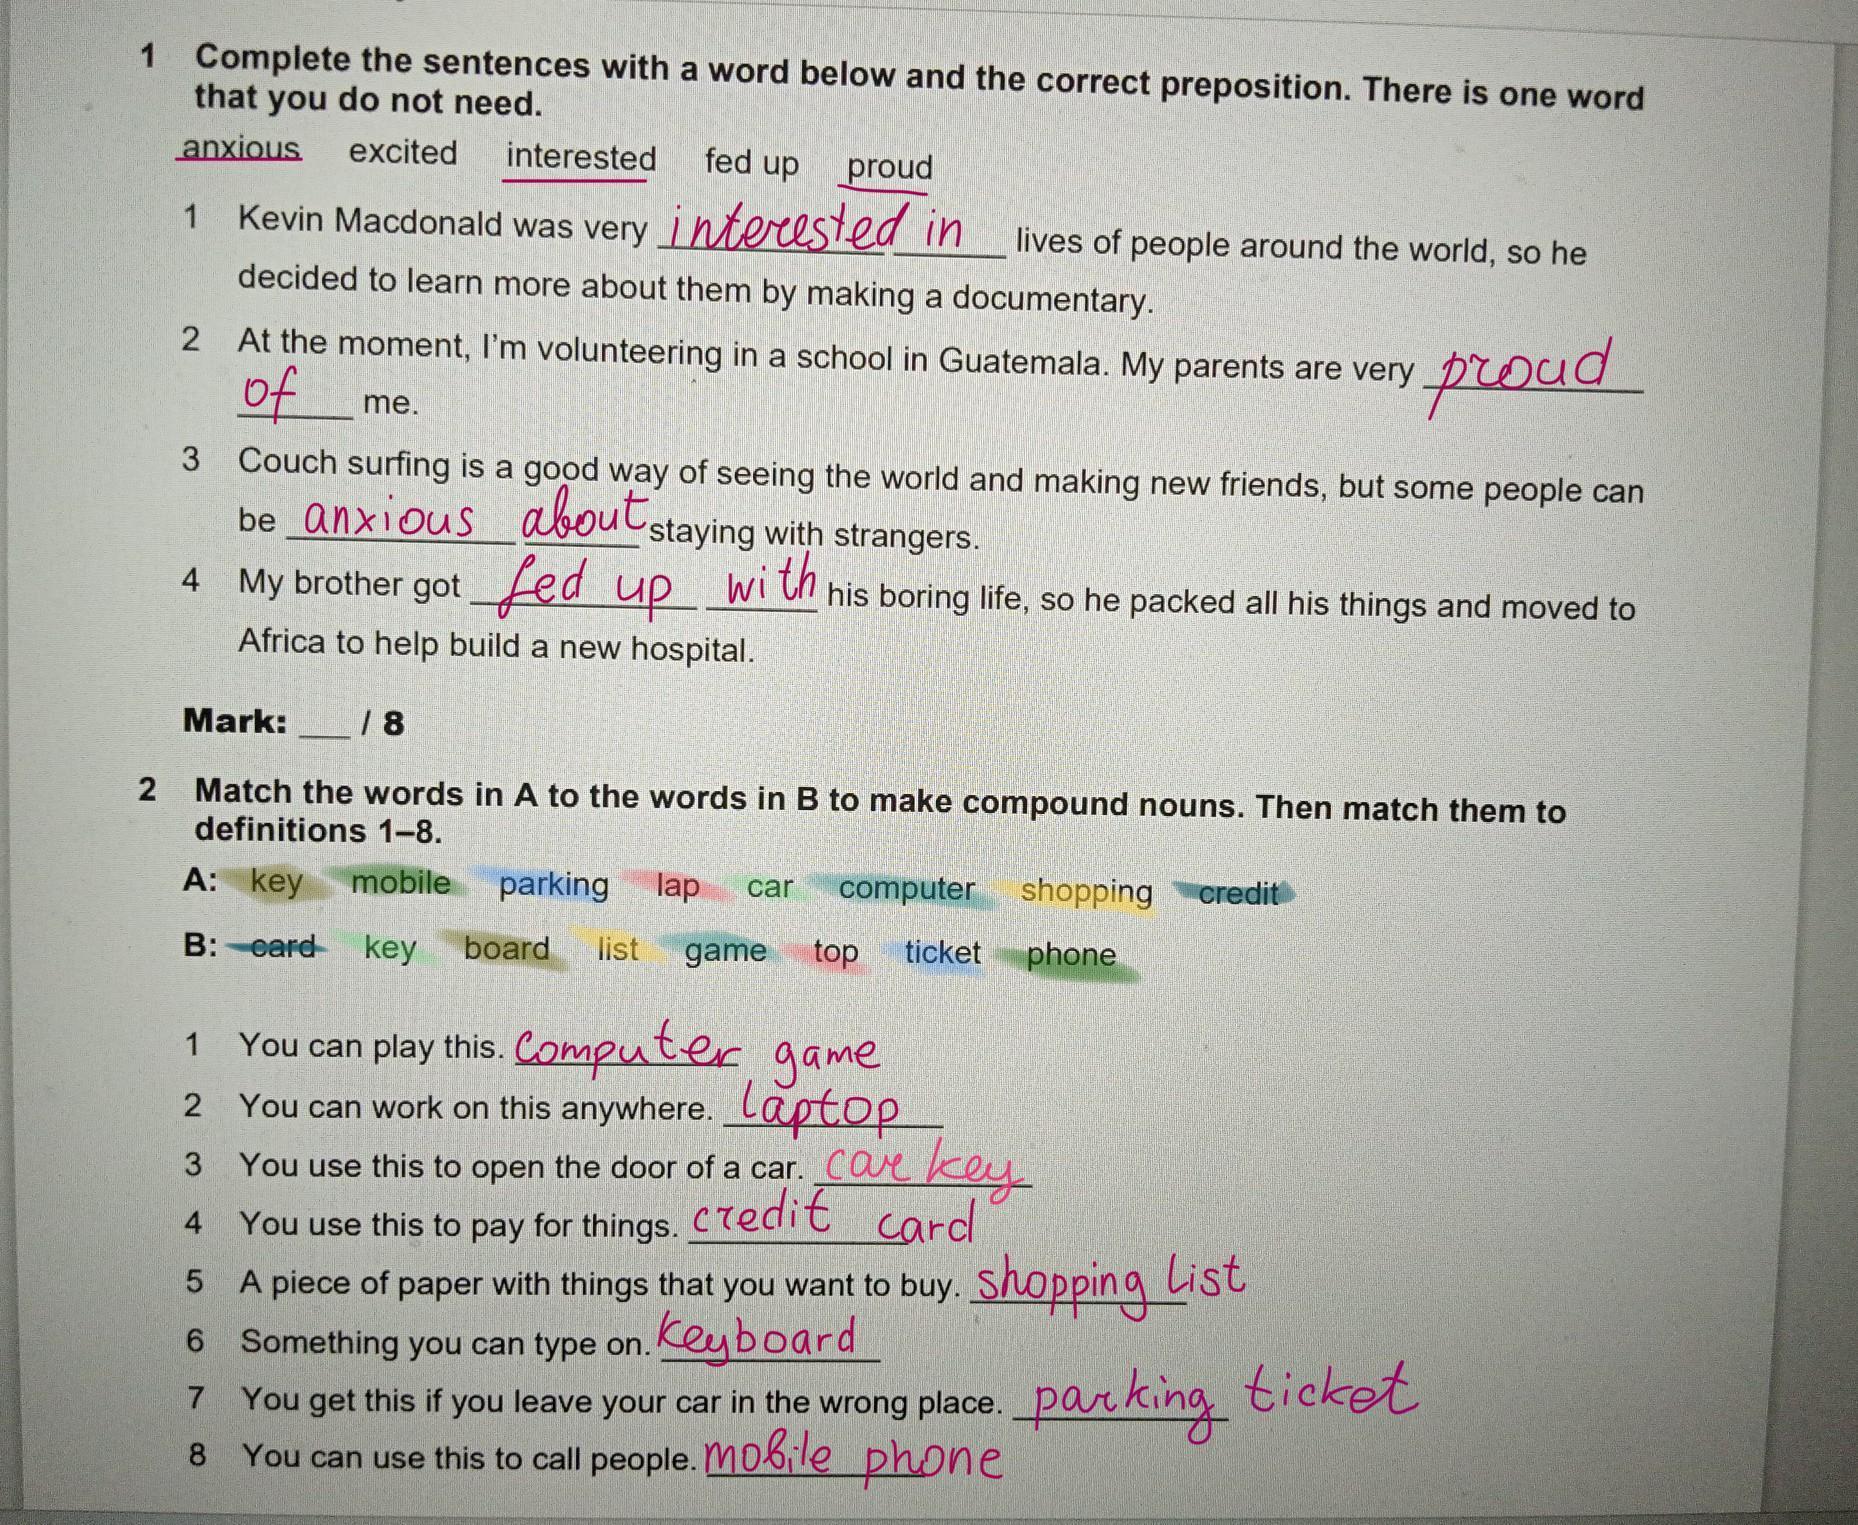 1 Complete the sentences with a word below and the correct preposition. There is one word
that you do not need.
anxious excited interested fed up proud
1 Kevin Macdonald was very interested in lives of people around the world, so he
decided to learn more about them by making a documentary.
2 At the moment, I'm volunteering in a school in Guatemala. My parents are very proud
of me.
3 Couch surfing is a good way of seeing the world and making new friends, but some people can
be anxious about staying with strangers.
4 My brother got fed up with his boring life, so he packed all his things and moved to
Africa to help build a new hospital.
Mark: ___ / 8
2 Match the words in A to the words in B to make compound nouns. Then match them to
definitions 1–8.
A: key mobile parking lap car computer shopping credit
B: card key board list game top ticket phone
1 You can play this. computer game
2 You can work on this anywhere. laptop
3 You use this to open the door of a car. car key
4 You use this to pay for things. credit card
5 A piece of paper with things that you want to buy. shopping list
6 Something you can type on. keyboard
7 You get this if you leave your car in the wrong place. parking ticket
8 You can use this to call people. mobile phone